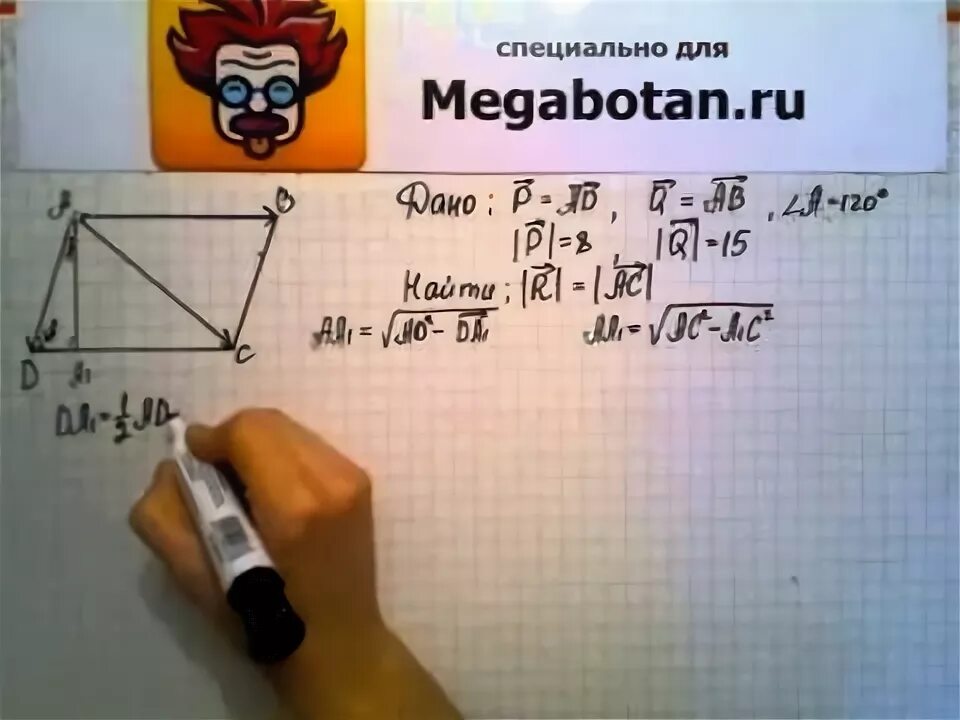 специально для
Megabotan.ru
A B
D A₁ C
Дано: P⃗ = AD⃗, Q⃗ = AB⃗, ∠A=120°
|P⃗|=8, |Q⃗|=15
Найти: |R⃗| = |AC⃗|
AA₁ = √(AD² − DA₁) AA₁ = √(AC² − A₁C²)
DA₁ = 1/2 AD